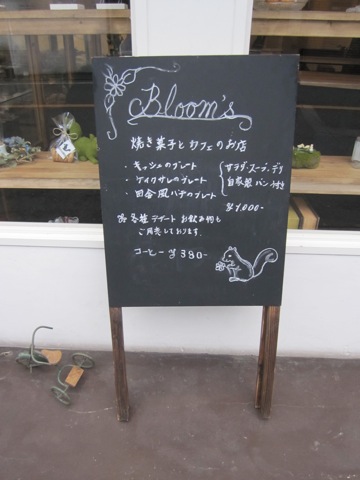 Bloom's
焼き菓子とカフェのお店
・キッシュのプレート
・ケイクサレのプレート
・田舎風パテのプレート
サラダ・スープ・デリ
自家製パン付き
各¥1,000-
各種デザート お飲み物も
ご用意しております。
コーヒー ¥380-